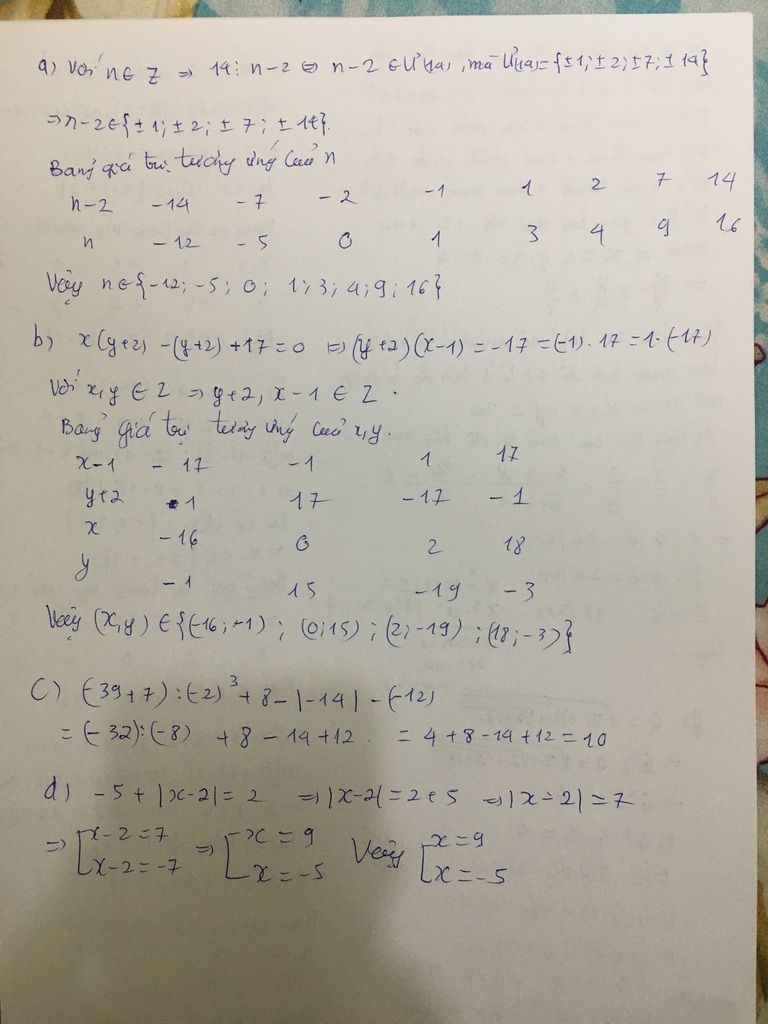 a) Với n ∈ Z ⇒ 14 ⋮ n-2 ⇔ n-2 ∈ Ư(14), mà Ư(14) = {±1; ±2; ±7; ±14}
⇒ n-2 ∈ {±1; ±2; ±7; ±14}.
Bảng giá trị tương ứng của n
n-2 -14 -7 -2 -1 1 2 7 14
n -12 -5 0 1 3 4 9 16
Vậy n ∈ {-12; -5; 0; 1; 3; 4; 9; 16}
b) x(y+2) - (y+2) + 17 = 0 ⇒ (y+2)(x-1) = -17 = (-1). 17 = 1. (-17)
Với x, y ∈ Z ⇒ y+2, x-1 ∈ Z.
Bảng giá trị tương ứng của x, y.
x-1 -17 -1 1 17
y+2 1 17 -17 -1
x -16 0 2 18
y -1 15 -19 -3
Vậy (x, y) ∈ {(-16; -1); (0; 15); (2; -19); (18; -3)}
c) (-39+7) : (-2)³ + 8 - |-14| - (-12)
= (-32) : (-8) + 8 - 14 + 12 = 4 + 8 - 14 + 12 = 10
d) -5 + |x-2| = 2 ⇒ |x-2| = 2 + 5 ⇒ |x-2| = 7
⇒ [x-2 = 7 ⇒ [x = 9 Vậy [x = 9
x-2 = -7 x = -5 x = -5